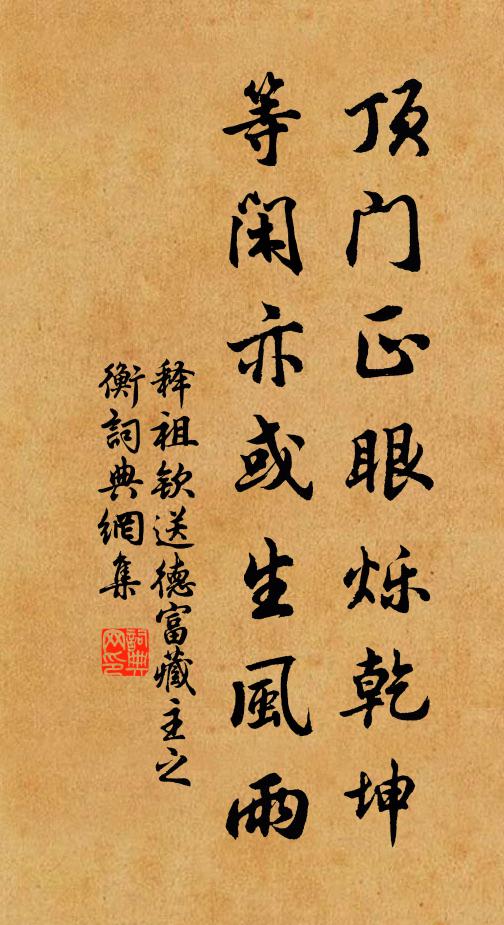 顶门正眼烁乾坤
等闲亦或生風雨
释祖钦送德富藏主之
衡詞典網集
詞典网印